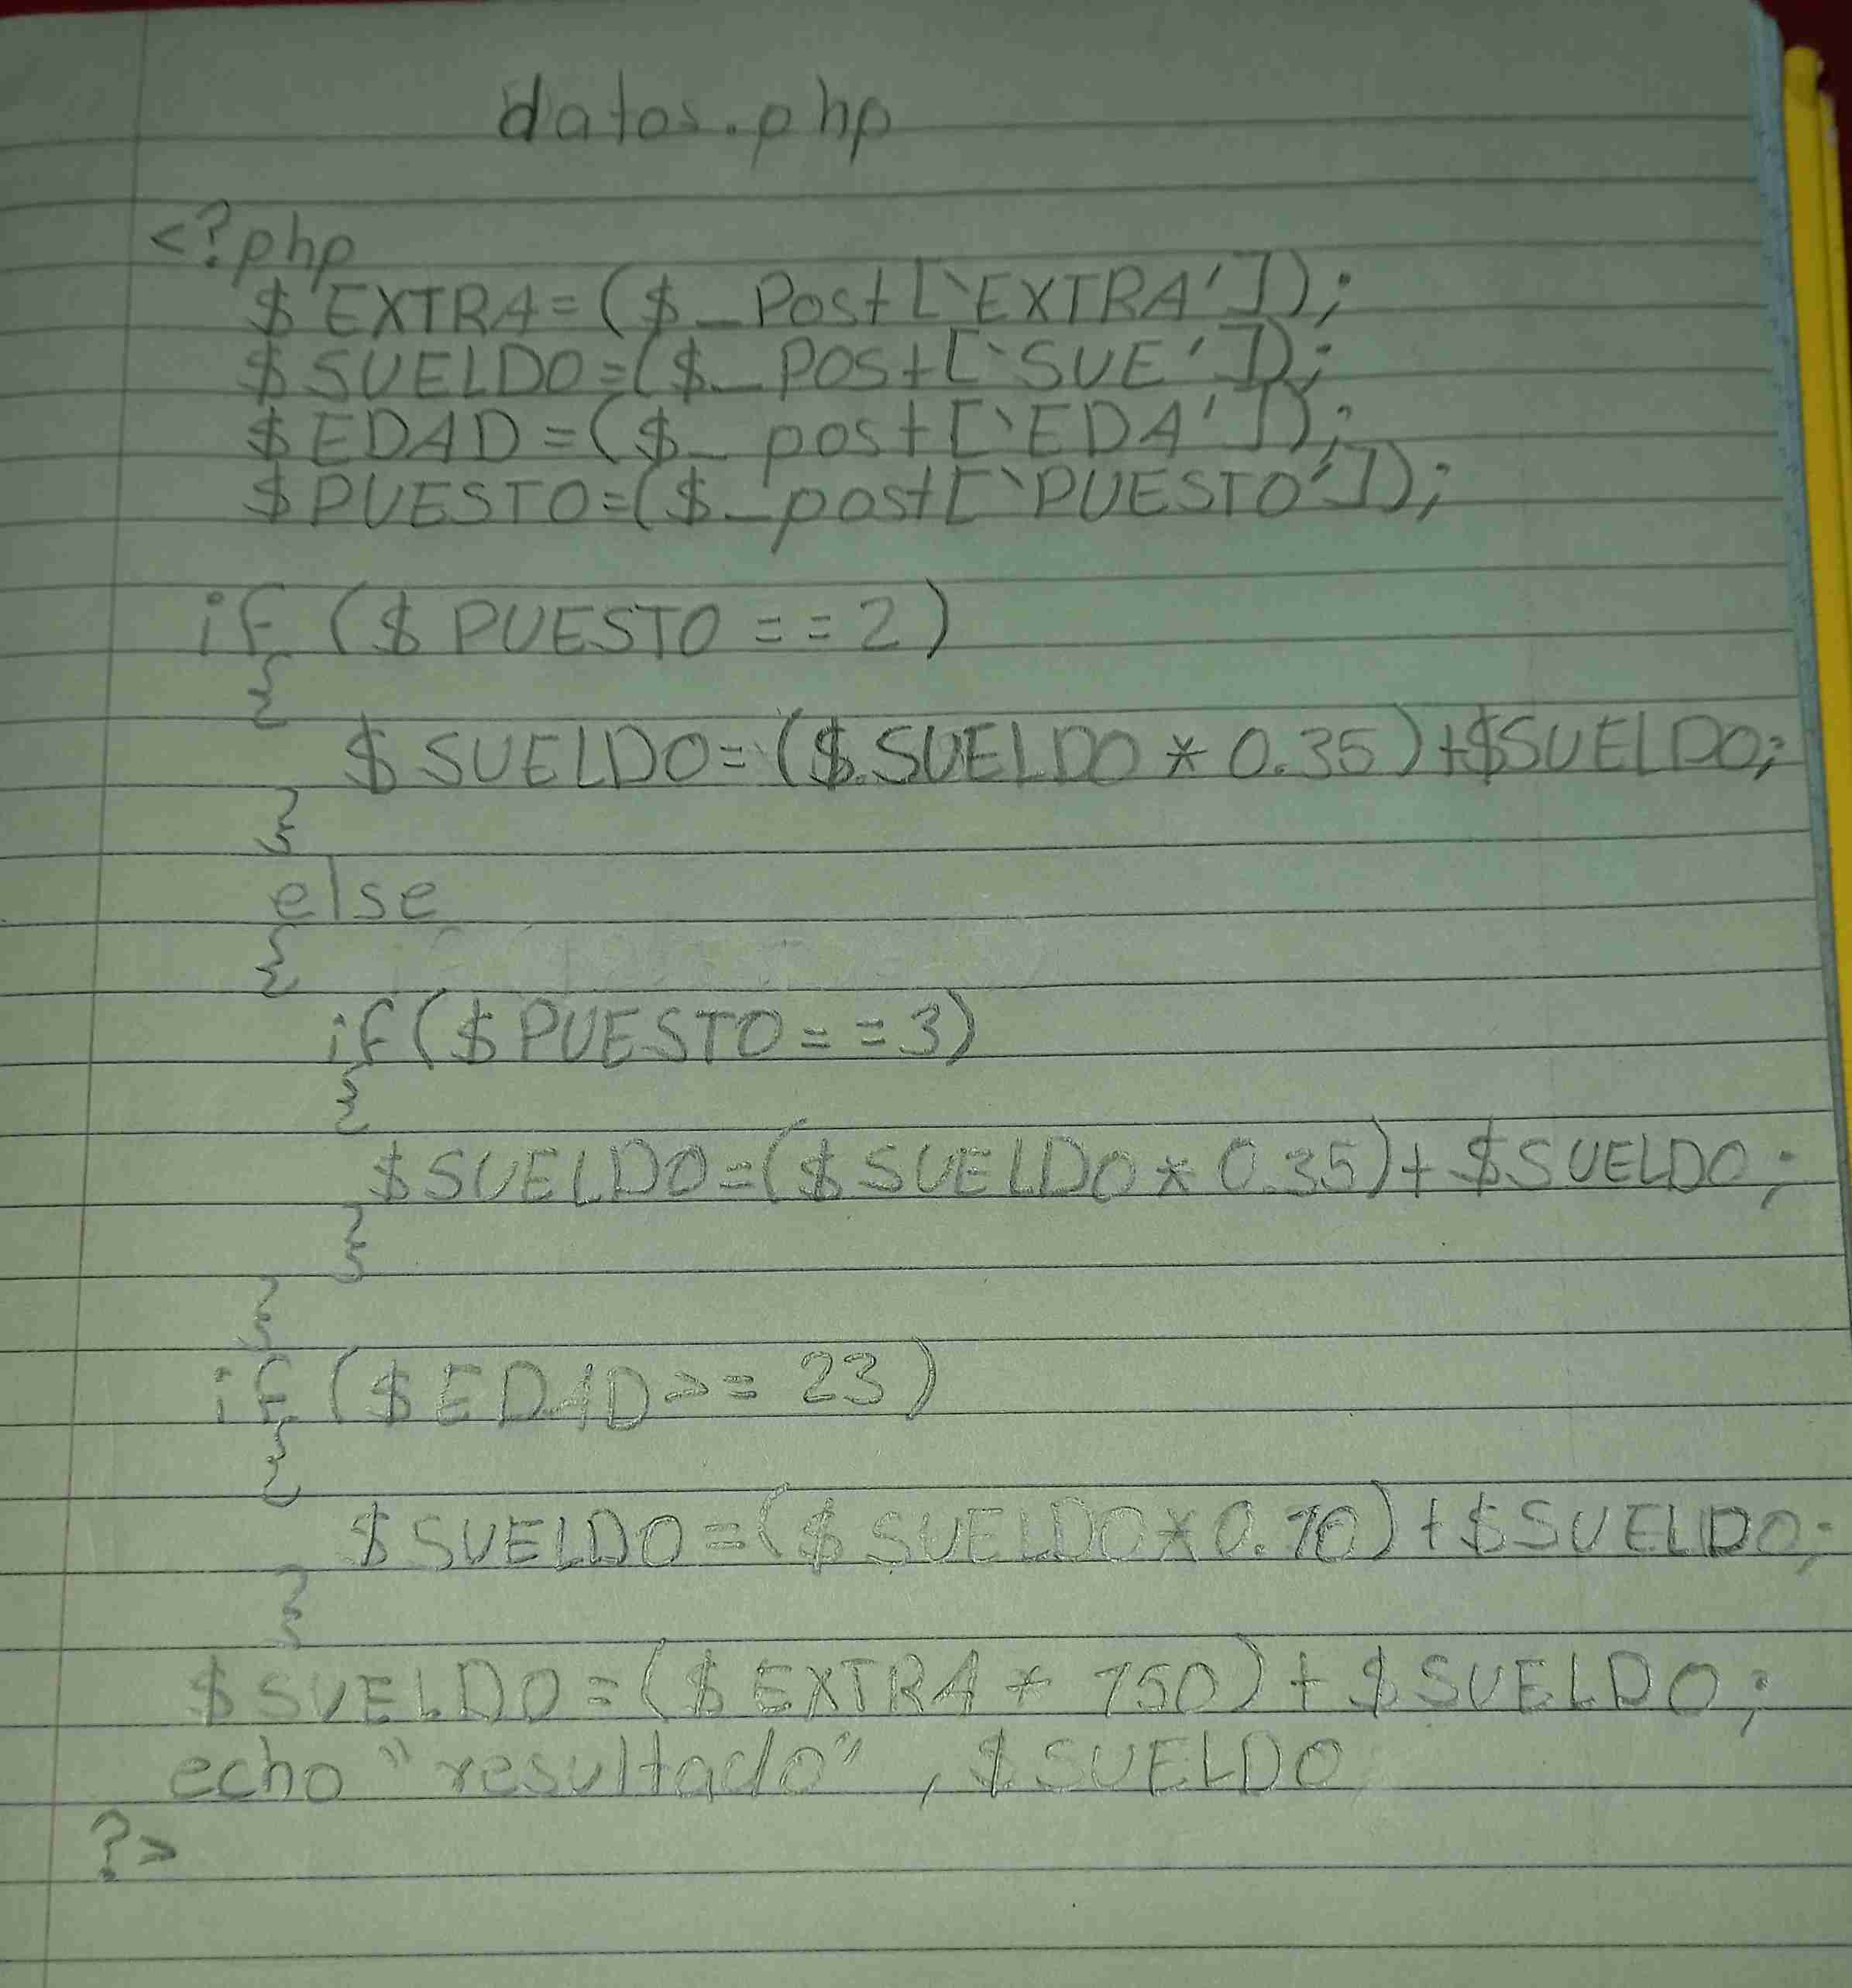 datos.php
<?php
$EXTRA=($_Post[`EXTRA']);
$SUELDO=($_Post[`SUE']);
$EDAD=($_post[`EDA']);
$PUESTO=($_post[`PUESTO']);
if ($PUESTO==2)
{
$SUELDO=($SUELDO*0.35)+$SUELDO;
}
else
{
if($PUESTO==3)
{
$SUELDO=($SUELDO*0.35)+$SUELDO;
}
}
if ($EDAD>=23)
{
$SUELDO=($SUELDO*0.10)+$SUELDO;
}
$SUELDO=($EXTRA*150)+$SUELDO;
echo "resultado", $SUELDO
?>